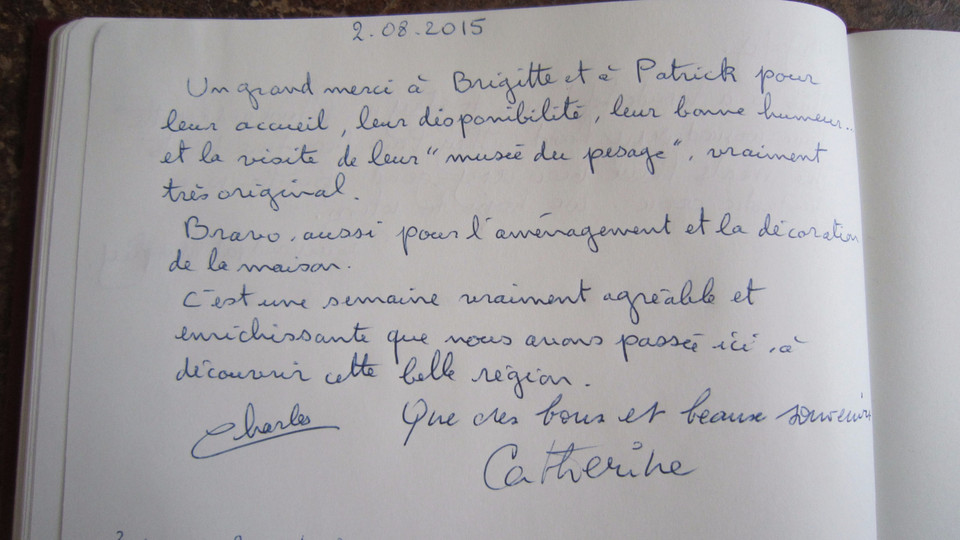 2.08.2015
Un grand merci à Brigitte et à Patrick pour
leur accueil, leur disponibilité, leur bonne humeur...
et la visite de leur "musée du pesage", vraiment
très original.
Bravo, aussi pour l'aménagement et la décoration
de la maison.
C'est une semaine vraiment agréable et
enrichissante que nous avons passée ici, à
découvrir cette belle région.
Que des bons et beaux souvenirs
Charles
Catherine